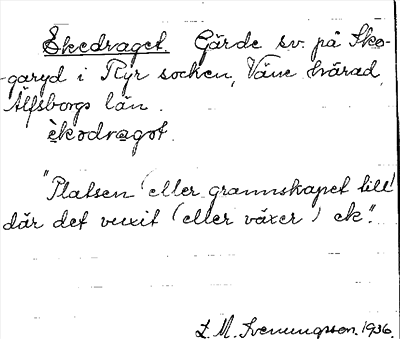 Ekedraget. Gärde sv. på Sko-
garyd i Ryr socken, Väne härad,
Älfsborgs län.
èkodragot.
"Platsen (eller grannskapet till)
där det vuxit (eller växer) ek".
S. M. Svenungsson. 1936.